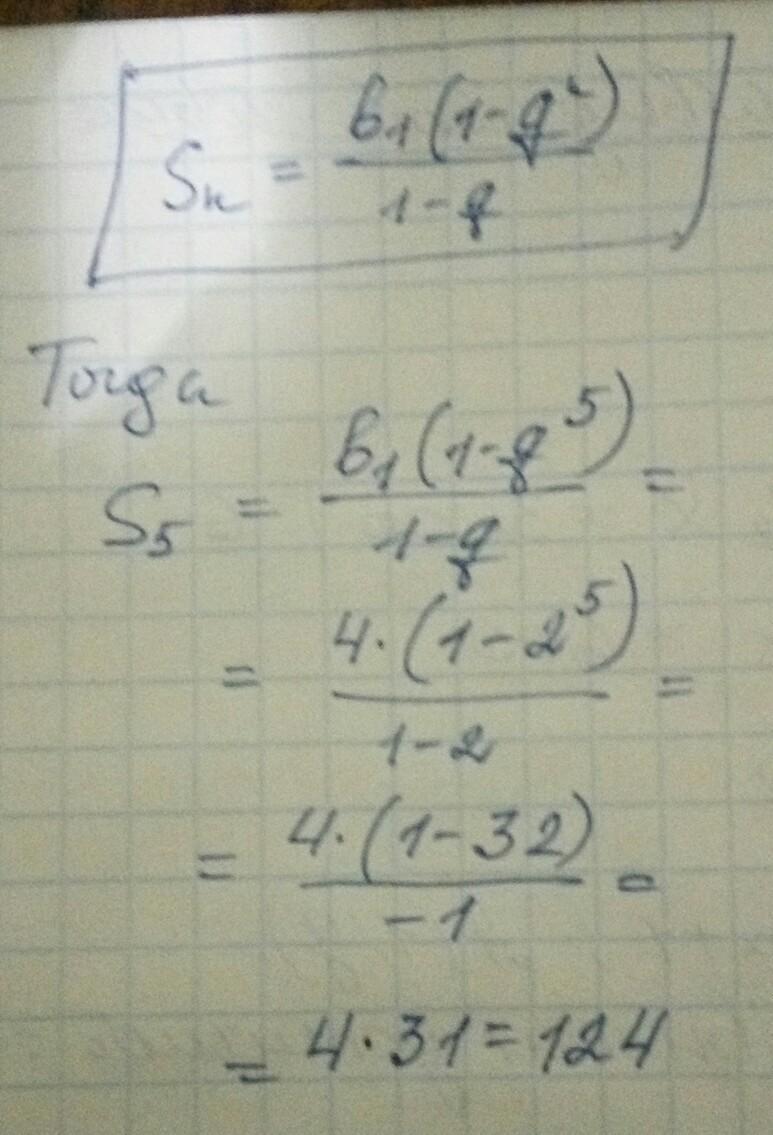 Sn = b₁(1-qⁿ) / 1-q
Тогда
S₅ = b₁(1-q⁵) / 1-q =
= 4·(1-2⁵) / 1-2 =
= 4·(1-32) / -1 =
= 4·31=124